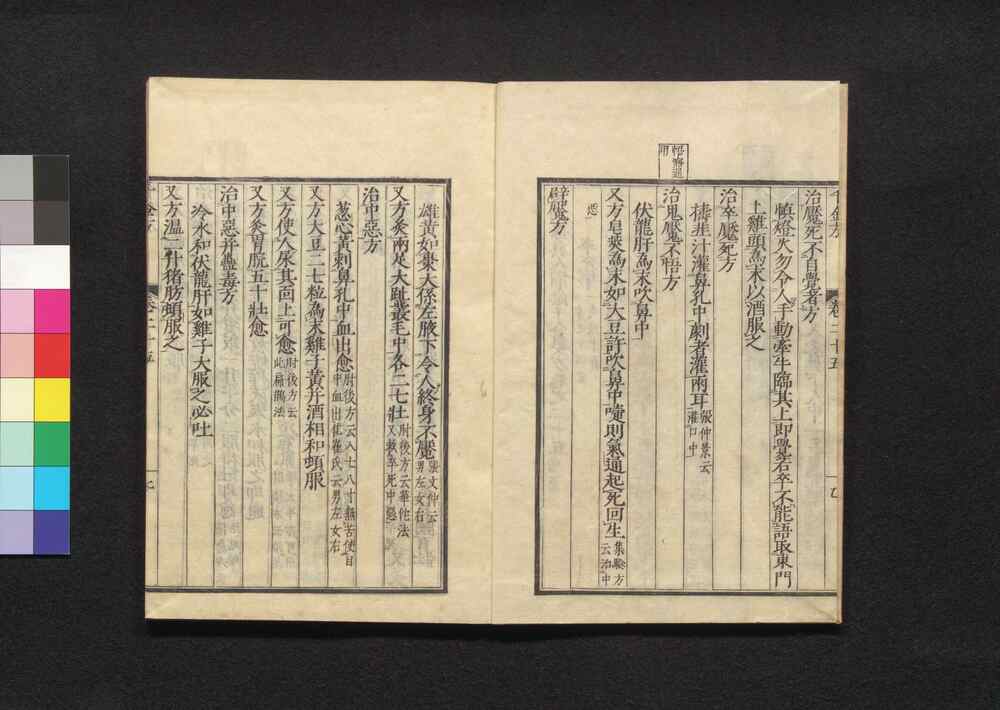 治魘死不自覺者方
慎燈火勿令人手動牽牛臨其上即覺若卒不能語取東門
上雞頭為末以酒服之
治卒魘死方
擣韭汁灌鼻孔中劇者灌兩耳張仲景云灌口中
治鬼魘不悟方
伏龍肝為末吹鼻中
又方皂莢為末如大豆許吹鼻中嚏則氣通起死回生集驗方云治中
恶
辟魘方
雄黃如棗大係左腋下令人終身不魘張文仲云男左女右
又方灸兩足大趾叢毛中各二七壯肘後方云華佗法又救卒死中惡
治中惡方
葱心黃刺鼻孔中血出愈肘後方云入七八寸無苦使目中血出佳崔氏云男左女右
又方大豆二七粒為末雞子黃并酒相和頓服
又方使人尿其面上可愈肘後方云此扁鵲法
又方灸胃脘五十壯愈
治中惡并蠱毒方
冷水和伏龍肝如雞子大服之必吐
又方溫二升猪肪頓服之